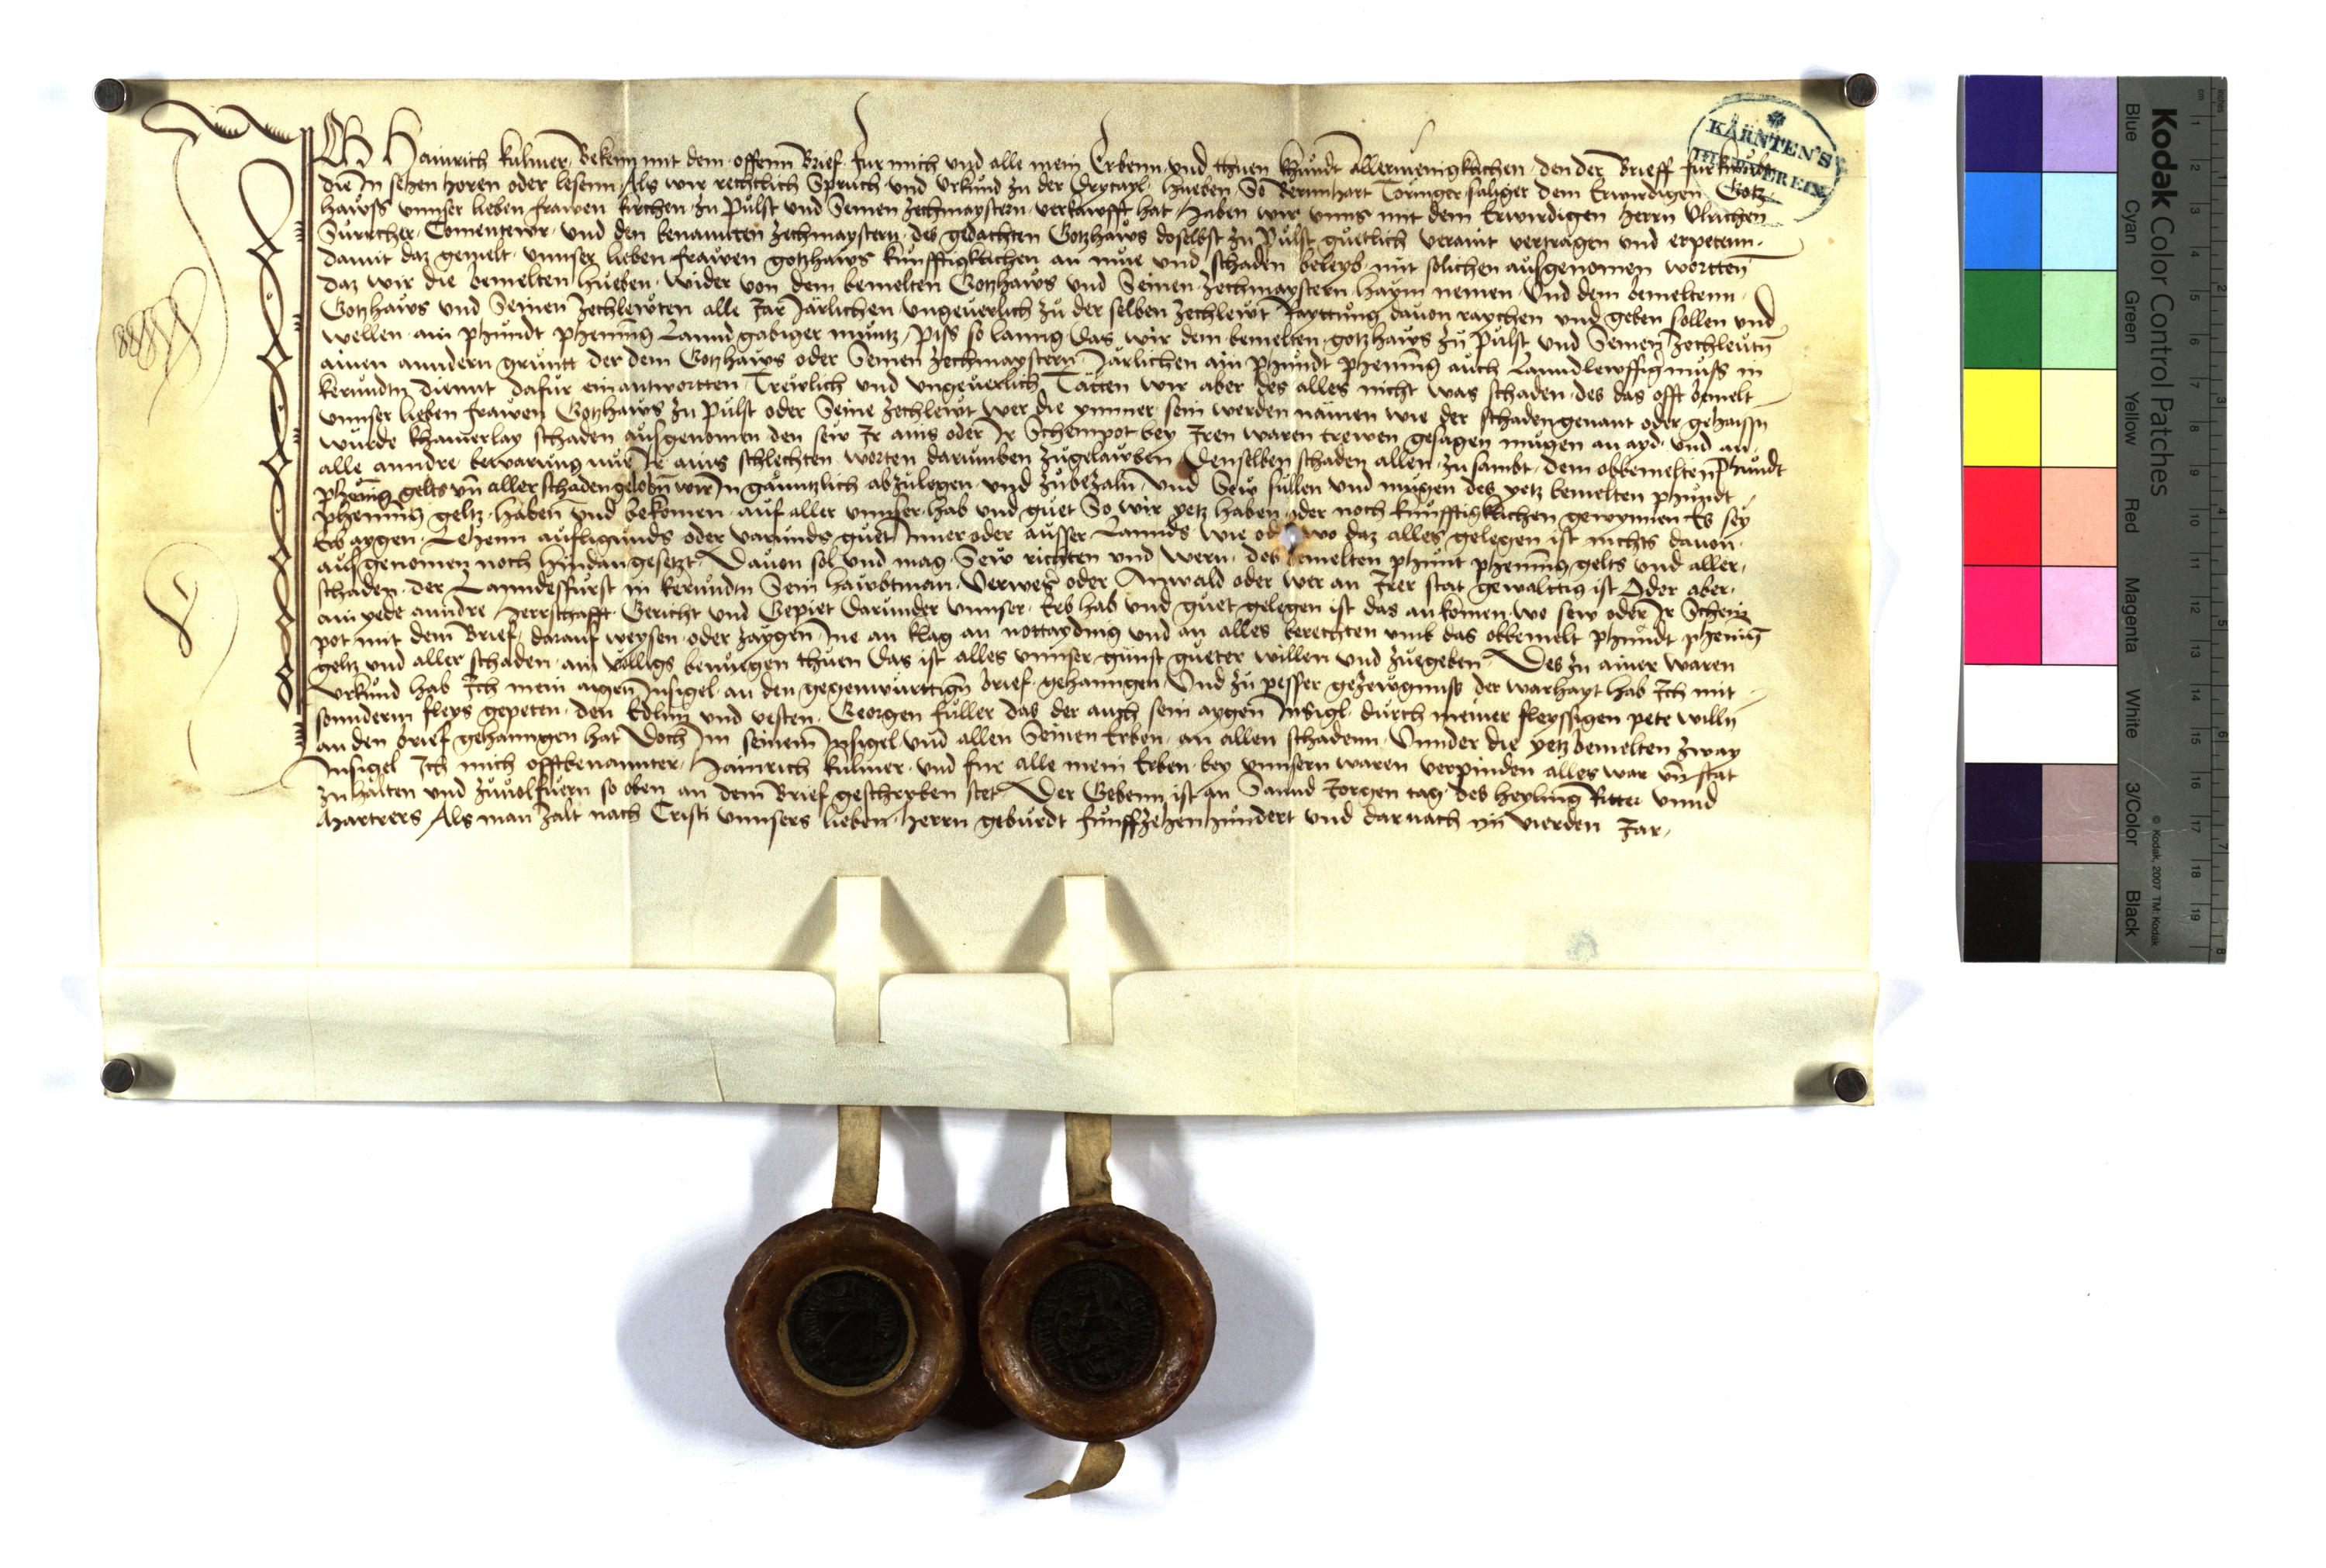 Ich Hainrich kulmer Bekenn mit dem offenn Brief fur mich vnd alle mein Erbenn vnd thuen khundt Allermenigklichen den der Brieff fur kumbt
die In sehen horen oder lesenn Als wir rechtlich Spruch vnd vrkund zu der hueben So Bernnhart Toringer saliger dem Erwirdigen Gotz
hawss vnnser lieben frawen kirchen zu Pulst vnd Seinen zechmaystern verkawfft hat haben wir vnns mit dem Erwirdigen herrn Vlrichen
Comentewr vnd den benannten zechmaystern des gedachten Gotzhaws doselbst zu Pulst guetlich veraint vertragen vnd erpetenn
damit daz gemelt vnnser lieben frawen gotzhaws kunfftigklichen an mue vnd schaden beleyb mit solichen ausgenomen wortten
daz wir die bemelten hueben wider von dem bemelten Gotzhaws vnd Seinen zechmaystern haym nemen Vnd dem bemeltenn
Gotzhaws vnd Seinen zechlewten alle Jar Järlichen vngeuerlich zu der selben zechlewt Rayttung dauon raychen vnd geben sollen vnd
wellen ain phundt phening Lannd gabiger muntz Piss so lanng Das wir dem bemelten gotzhaws zu Pulst vnd Seinen zechleutn
ainen anndern gruntt der dem Gotzhaws oder Seinen zechmaystern Järlichen ain Phundt phening auch Lanndlewffig muss in
kerndtn diennt dafur einantwortten Trewlich vnd vngeuerlich Tätten wir aber des alles nicht was schaden des das offt bemelt
vnnser lieben frawen Gotzhaws zu Pulst oder Seine zechlewt wer die ymmer sein werden namen wie der schaden genant oder gehaissn
wurde khainerlay schaden ausgenomen den sew Ir ains oder Ir Schempot bey Iren waren trewen gesagen mugen an ayd vnd an
alle anndre bewarung nur Ir ains schlechten worten darumben zugelawben Denselben schaden allen zu sambt dem obbemelten Phundt
phening gelts vnd aller schaden geloben wir In gänntzlich abzulegen vnd zubezaln Vnd Sew sullen vnd mugen des yetz bemelten phundt
phening geltz haben vnd bekomen auf aller vnnser hab vnd guet So wir yetz haben oder noch kunfftigklichen gewynnen Es sey
Erb aygen Lehenn aufligunds oder varunds guet Inner oder ausser Lannds wie wo daz alles gelegen ist nichts dauon
ausgenomen noch hindan gesetzt Dauon sol vnd mag Sew richten vnd wern des bemelten phunt phening gelts vnd aller
schaden der Lanndesfurst in kerndtn Sein hawbtman Verweser oder Anwald oder wer an Irer stat gewaltig ist Oder aber
ain yede anndre Herrschafft Gericht vnd Gepiet Darunder vnnser Erb hab vnd guet gelegen ist das ankomen wo sew oder Ir Schem
pot mit dem Brief darauf weysen oder zaygen Ine an klag an nottayding vnd an alles berechten vmb das obbemelt phundt phening
geltz vnd aller schaden ain völligs benuegen thuen Das ist alles vnnser gunst gueter willen vnd zuegeben Des zu ainer waren
vrkund hab Ich mein aigen Insigel an den gegenwurttign brief gehanngen Vnd zu pesser gezewgnuss der warhayt hab Ich mit
sonnderm fleys gepeten den Edlen vnd vesten Georgen fuller das der auch sein aygen Insigl durch meiner fleyssigen pete willn
an den brief gehanngen hat Doch Im seinem Insigel vnd allen Seinen Erben an allen schadenn Vnnder die yetz bemelten zway
Insigel Ich mich offtbenannter Hainrich kulmer vnd fur alle mein Erben bey vnnsern waren verpinden alles war vnd stat
zu halten vnd zuuolfuern so oben an dem Brief geschryben stet Der Gebenn ist an Sannd Jorgen tag des heyling Ritter vnnd
Martrers Als man zalt nach Cristi vnnsers lieben herrn geburdt funffzehenhundert vnd darnach im vierden Jar
KÄRNTEN'S
Kodak Color Control Patches
Blue Cyan Green Yellow Red Magenta White 3/Color Black
© Kodak, 2007 TM: Kodak